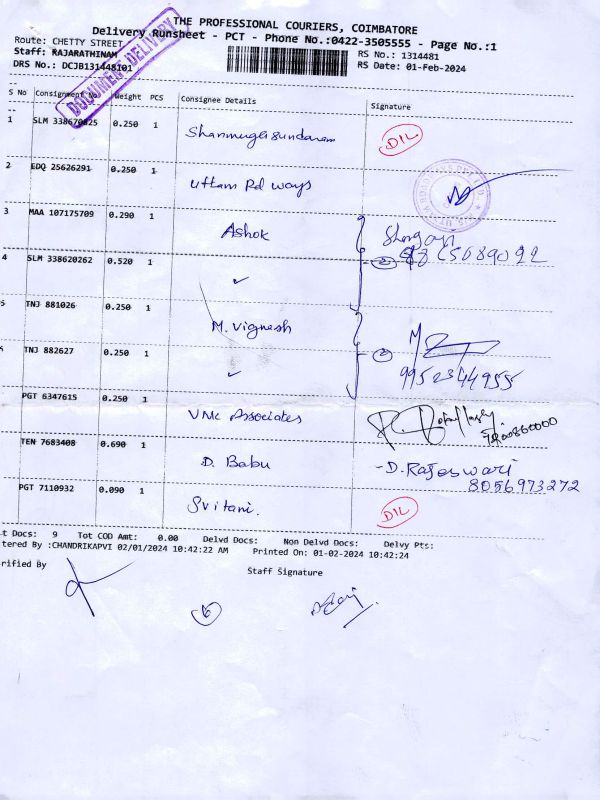 THE PROFESSIONAL COURIERS, COIMBATORE
Delivery Runsheet - PCT - Phone No.:0422-3505555 - Page No.:1
Route: CHETTY STREET
RS No.: 1314481
Staff: RAJARATHINAM
RS Date: 01-Feb-2024
DRS No.: DCJB131448101
DOCUMENT DELIVERY
S No Consignment No Weight PCS Consignee Details Signature
1 SLM 338670825 0.250 1 Shanmugasundaram DIL
2 EDQ 25626291 0.250 1 Uttam Rd ways
3 MAA 107175709 0.290 1 Ashok
4 SLM 338620262 0.520 1 ✓ 2
5 TNJ 881026 0.250 1 M. Vignesh
TNJ 882627 0.250 1 ✓ 2
9952344955
PGT 6347615 0.250 1 VMC Associates
TEN 7683408 0.690 1 D. Babu - D. Rajeswari
8056973272
PGT 7110932 0.090 1 Sritani. DIL
t Docs: 9 Tot COD Amt: 0.00 Delvd Docs: Non Delvd Docs: Delvy Pts:
tered By :CHANDRIKAPVI 02/01/2024 10:42:22 AM Printed On: 01-02-2024 10:42:24
rified By
Staff Signature
6